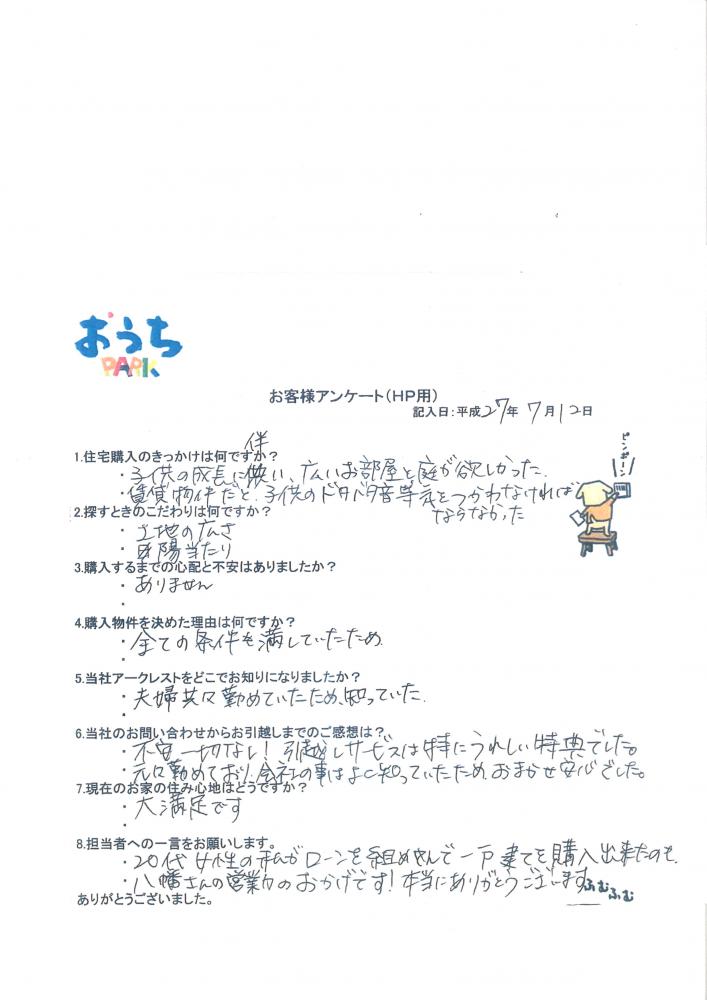 おうち
PARK
お客様アンケート(HP用)
記入日:平成27年 7月12日
1.住宅購入のきっかけは何ですか?
・子供の成長に伴い、広いお部屋と庭が欲しかった.
・賃貸物件だと、子供のドタバタ音等気をつかわなければ
ならなかった
ピンポーン
2.探すときのこだわりは何ですか?
・土地の広さ
・日陽当たり
3.購入するまでの心配と不安はありましたか?
・ありません
・
4.購入物件を決めた理由は何ですか?
・全ての条件を満していたため.
・
5.当社アークレストをどこでお知りになりましたか?
・夫婦共々勤めていたため、知っていた.
・
6.当社のお問い合わせからお引越しまでのご感想は?
・不安一切なし!引越しサービスは特にうれしい特典でした。
・元々勤めており、会社の事はよく知っていたため、おまかせ安心でした。
7.現在のお家の住み心地はどうですか?
・大満足です
・
8.担当者への一言をお願いします。
・20代女性の私がローンを組めさんで一戸建てを購入出来たのも、
・八幡さんの営業力のおかげです!本当にありがとうございます
ふむふむ
ありがとうございました。